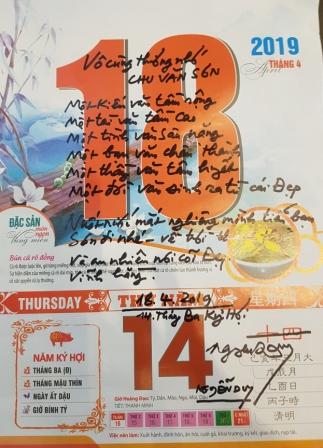 2019
THÁNG 4
April
18
Vô cùng thương nhớ
CHU VĂN SƠN
Một kiến văn tầm rộng
Một tài văn tầm cao
Một tình văn sâu nặng
Một bạn văn chân thành
Một thầy văn tâm huyết
Một đời văn đứng ra từ cái Đẹp
mất nghiêng mình tiễn bạn
Sơn ơi nhé - về
Và an nhiên nơi cõi Đẹp
Vĩnh hằng
18.4.2019
14. Tháng Ba Kỷ Hợi
NGUYỄN DUY
ĐẶC SẢN
món ngon
Vùng miền
Bún cá rô đồng
THURSDAY
THỨ NĂM
星期四
NĂM KỶ HỢI
THÁNG BA (Đ)
THÁNG MẬU THÌN
NGÀY ẤT DẬU
GIỜ BÍNH TÝ
14
十四
乙亥年三月大
戊辰月
乙酉日
丙子時
清明
Giờ Hoàng Đạo: Tý, Dần, Mão, Ngọ, Mùi, Dậu
TIẾT: THANH MINH
TUẦN 16
Việc nên làm: Xuất hành, đính hôn, ăn hỏi, cưới gả, khai trương, ký kết, nạp tài,